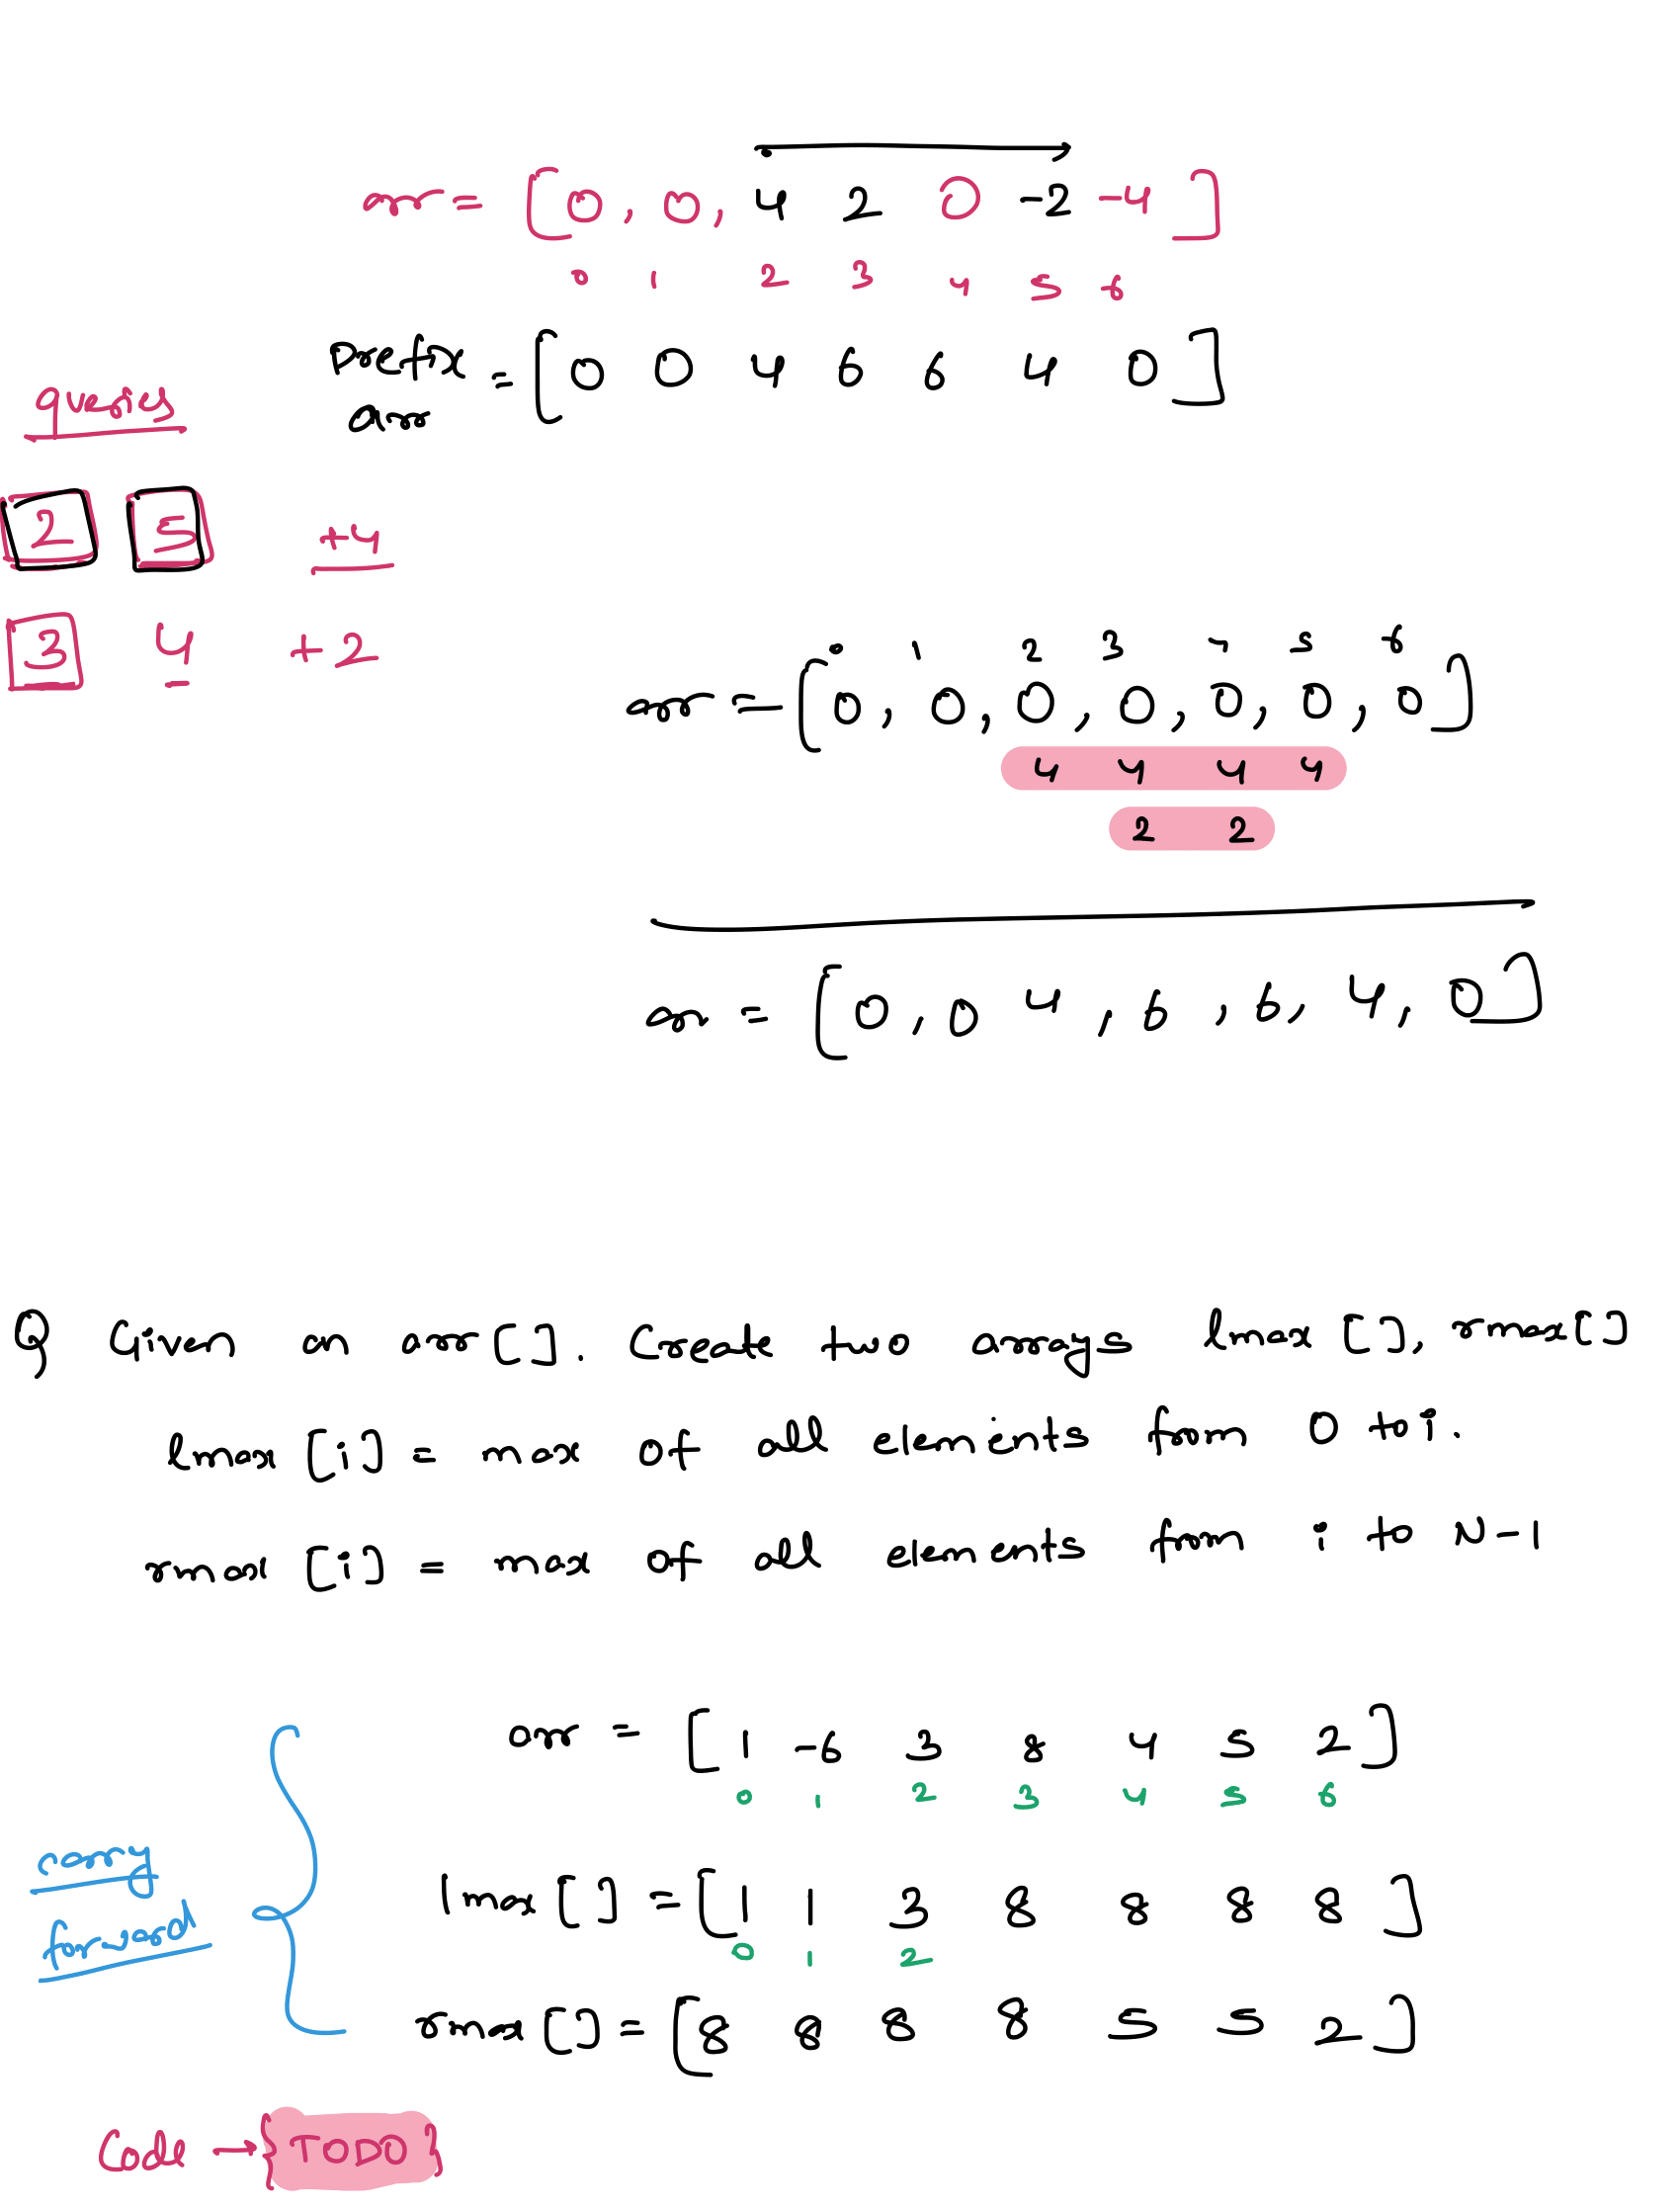 arr = [0, 0, 4 2 0 -2 -4]
0 1 2 3 4 5 6
Prefix arr = [0 0 4 6 6 4 0]
queries
2 5 +4
3 4 +2
0 1 2 3 4 5 6
arr = [0, 0, 0, 0, 0, 0, 0]
4 4 4 4
2 2
arr = [0, 0 4, 6, 6, 4, 0]
Q Given an arr[]. Create two arrays lmax[], rmax[]
lmax[i] = max of all elements from 0 to i.
rmax[i] = max of all elements from i to N-1
arr = [1 -6 3 8 4 5 2]
0 1 2 3 4 5 6
carry
forward
lmax[] = [1 1 3 8 8 8 8]
0 1 2
rmax[] = [8 8 8 8 5 5 2]
Code → {TODO}